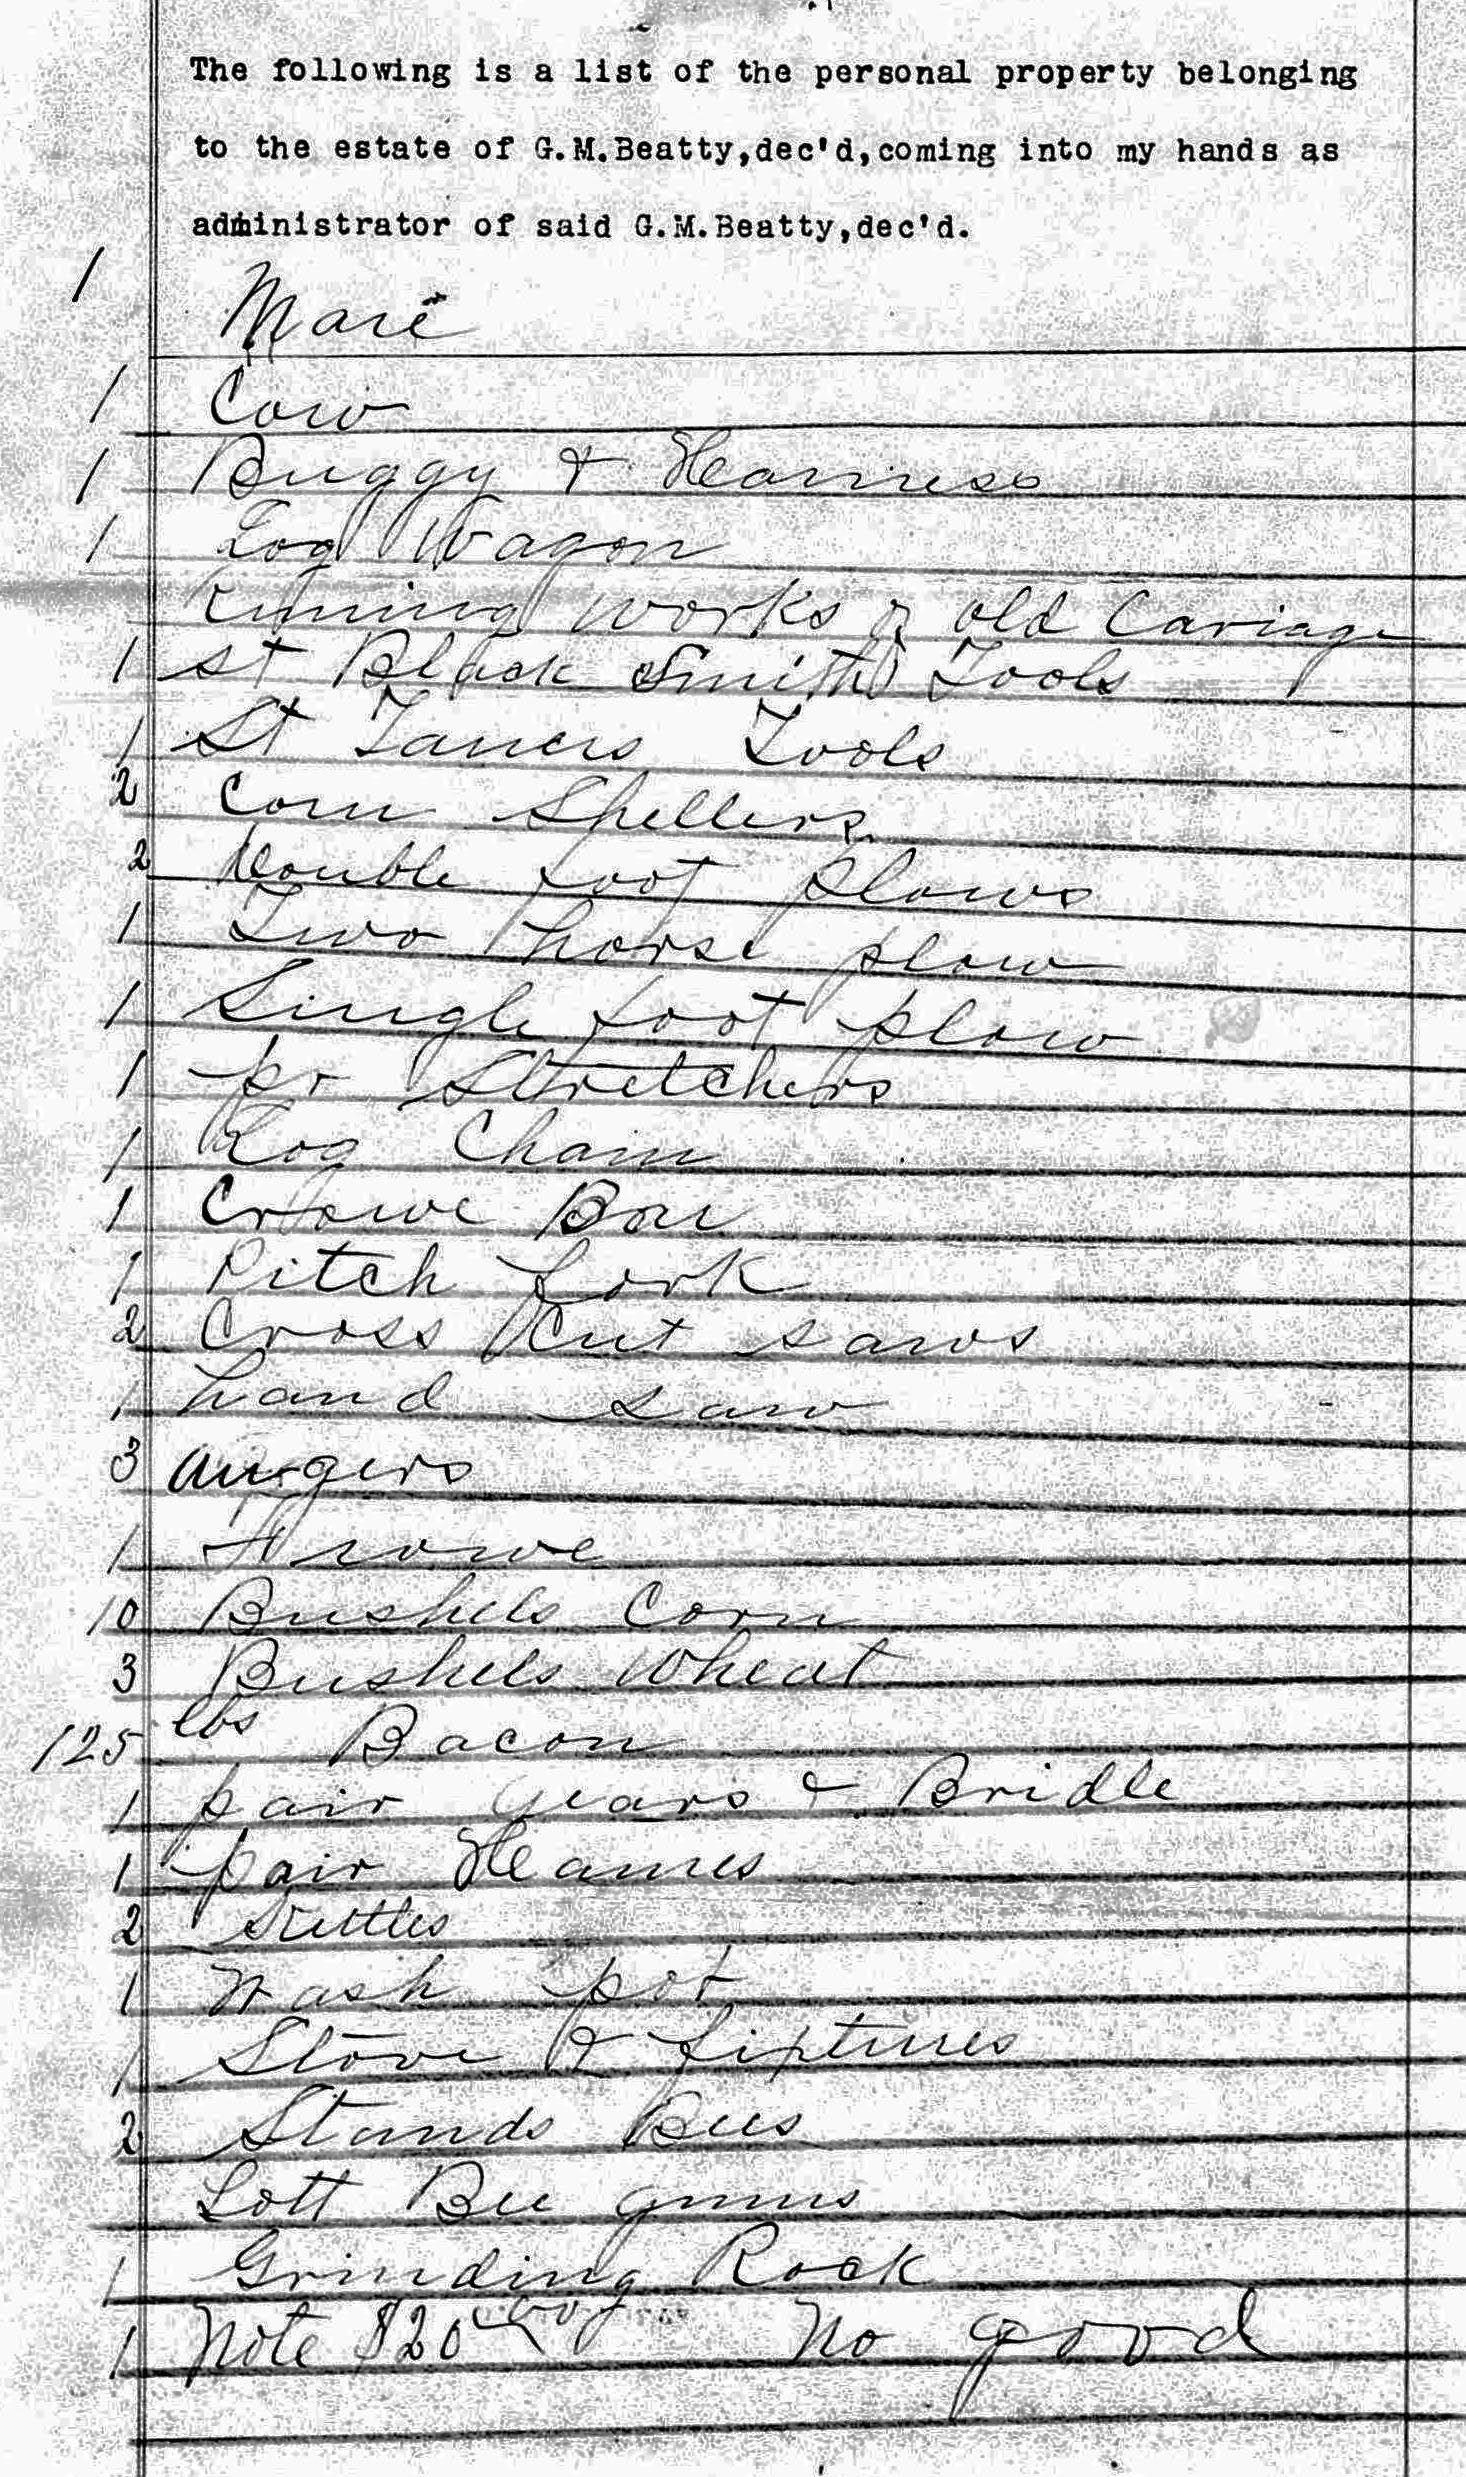 The following is a list of the personal property belonging
to the estate of G.M.Beatty,dec'd,coming into my hands as
administrator of said G.M.Beatty,dec'd.
1 Mare
1 Cow
1 Buggy & Hearness
1 Log Wagon
runing works of old Cariage
1 st Black Smith Tools
1 St Taners Tools
2 Corn Shellers
2 Double foot plows
1 Two horse plow
1 Single foot plow
1 pr Stretchers
1 Log Chain
1 Crowe Bar
1 Pitch fork
2 Cross Cut saws
1 hand saw
3 augers
1 Frowe
10 Bushels Corn
3 Bushels Wheat
125 lbs Bacon
1 pair Gears & Bridle
1 pair Heames
2 Kettles
1 Wash pot
1 Stove & fixtures
2 Stands Bees
Lott Bee gums
1 Grinding Rock
1 Note $20 no good